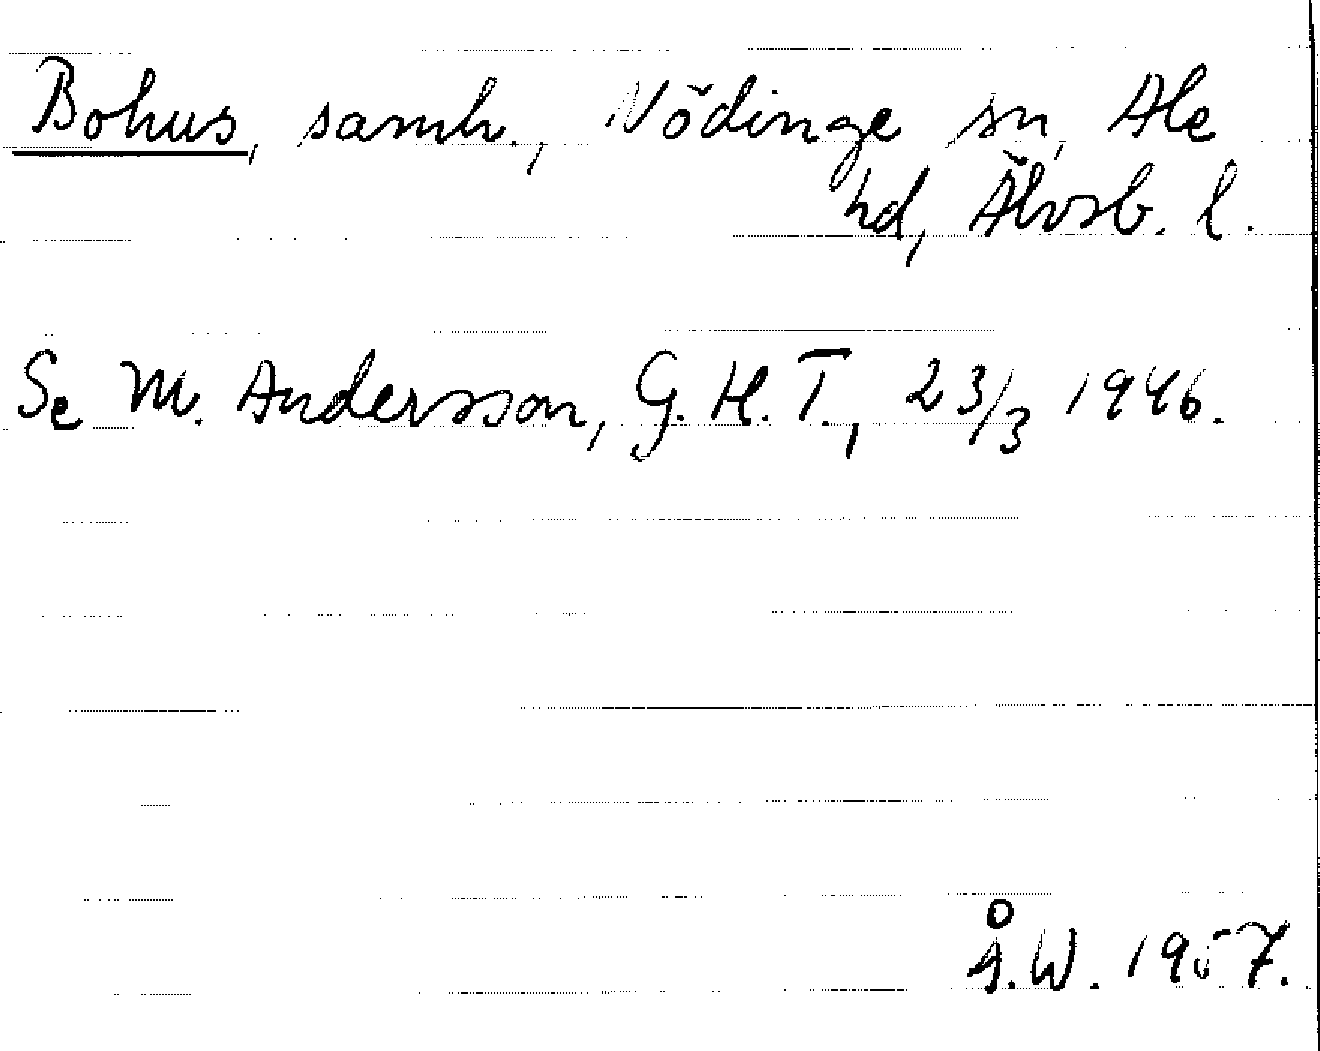 Bohus, samh., Nödinge sn, Ale
hd, Älvsb. l.
Se M. Andersson, G.H.T., 23/3 1946.
Å.W. 1957.